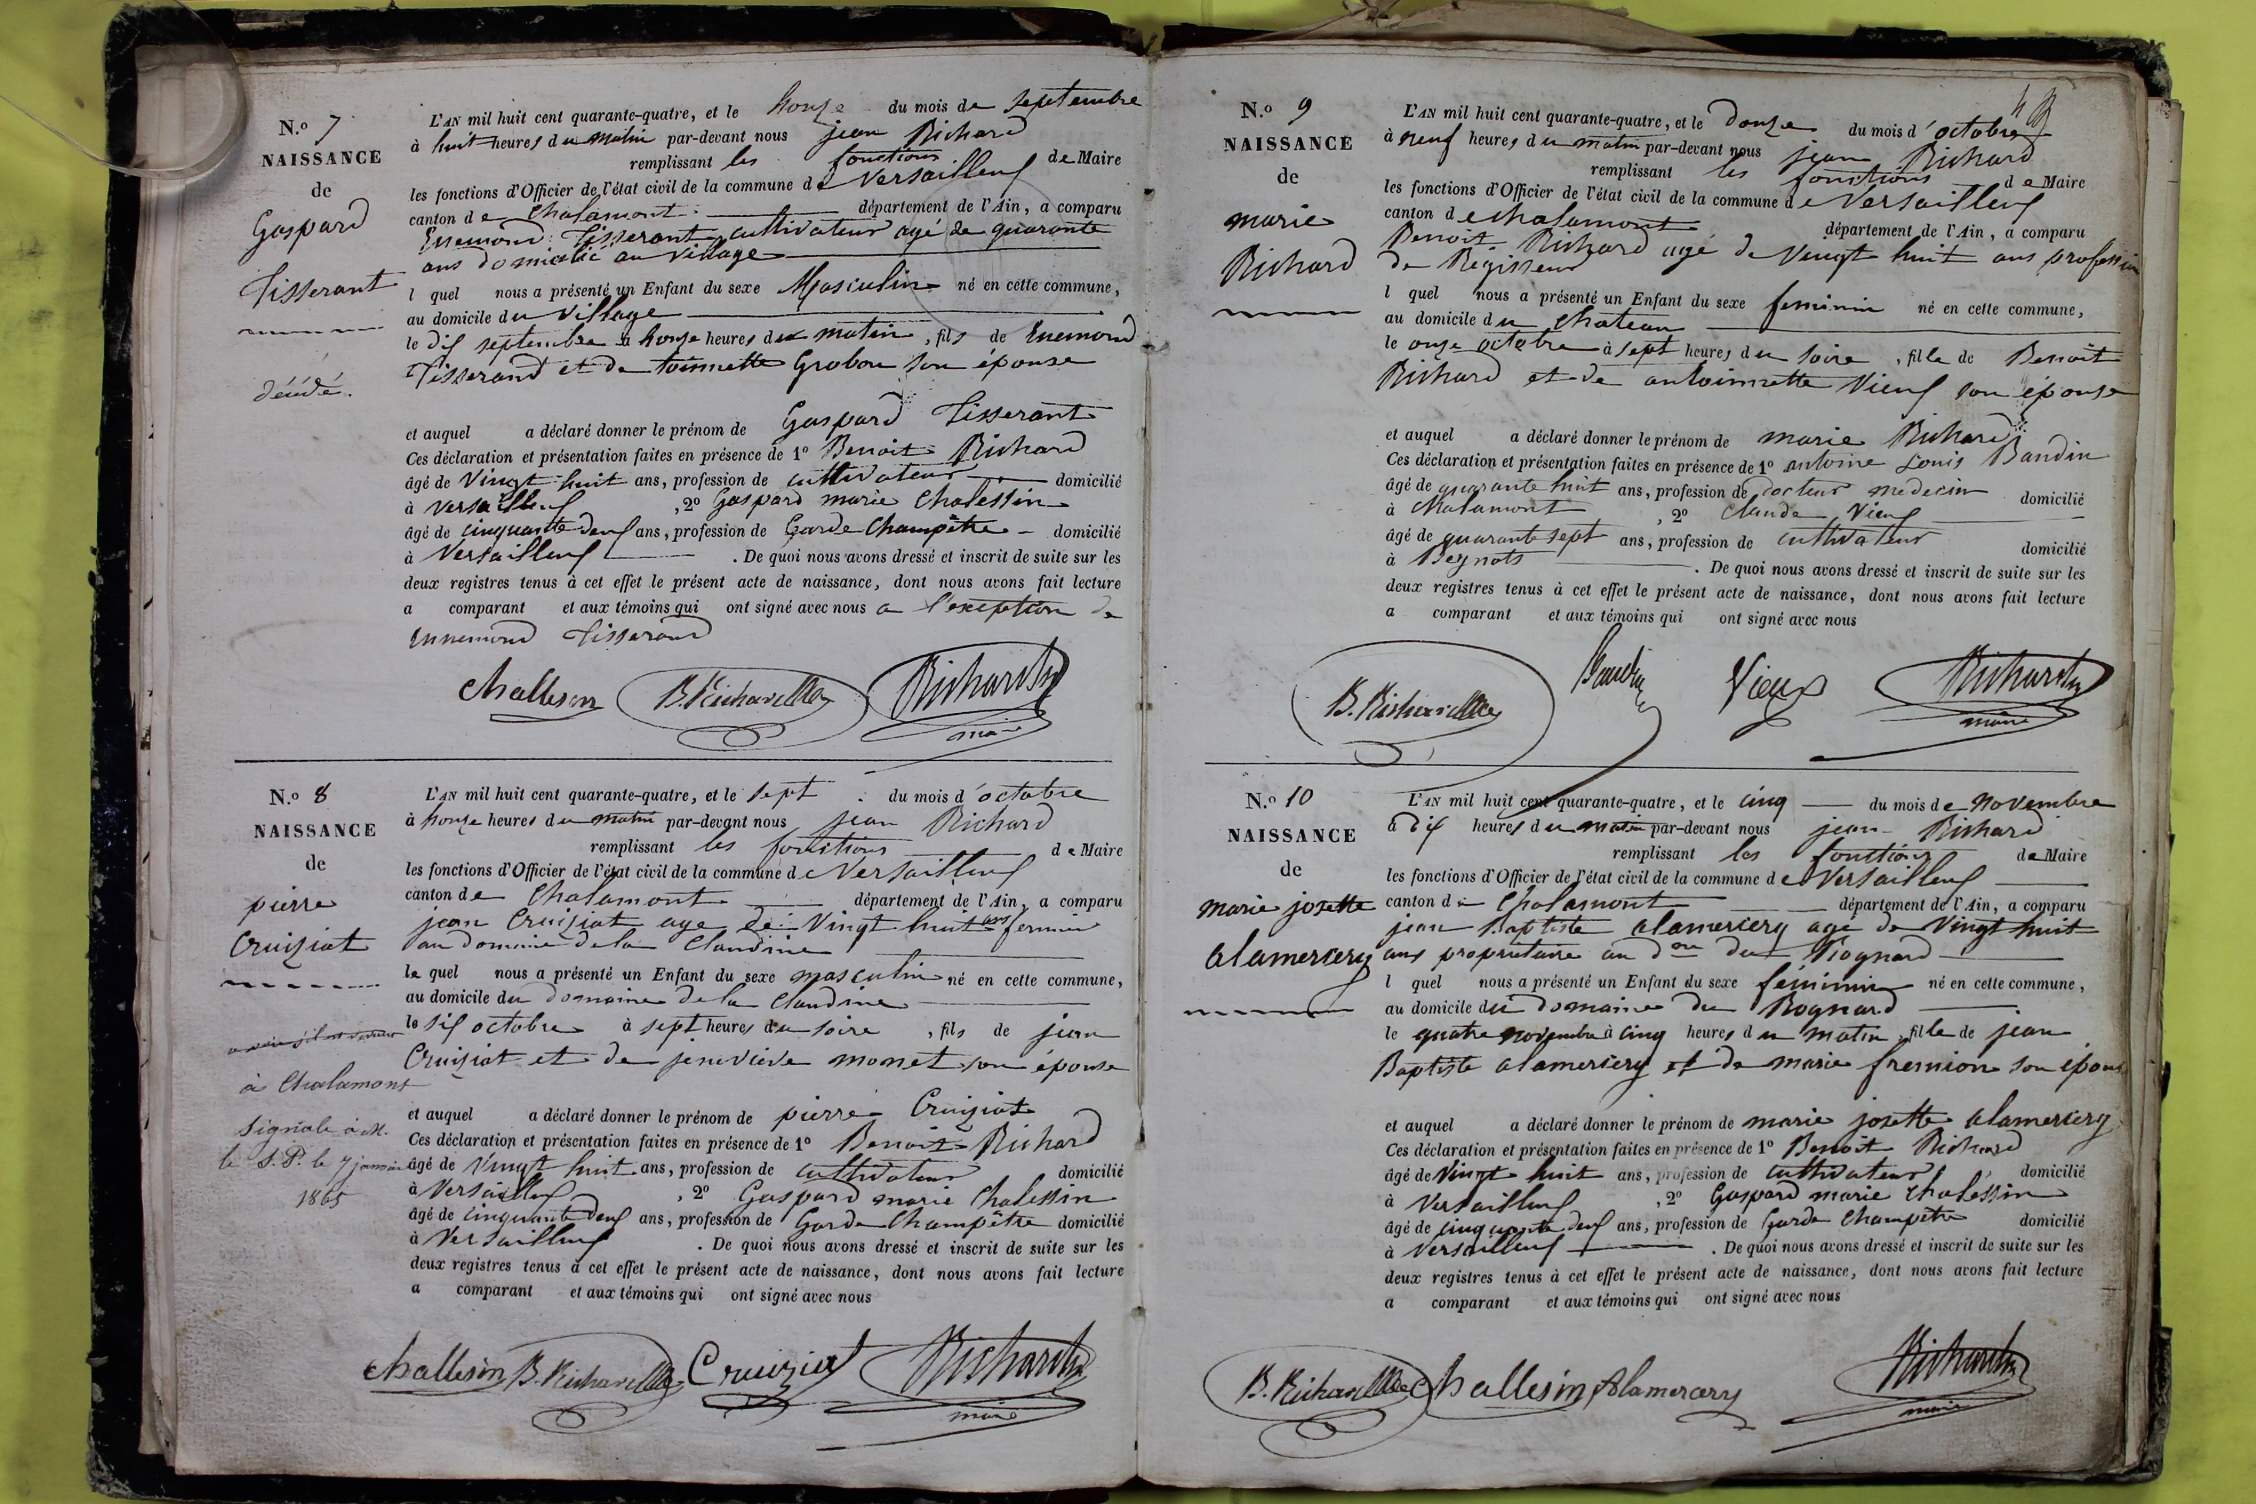 N.º 7
NAISSANCE
de
Gaspard
Tisserant
décédé.
L'AN mil huit cent quarante-quatre, et le honze du mois de septembre
à huit heures du matin par-devant nous jean Richard
remplissant les fonctions de Maire
les fonctions d'Officier de l'état civil de la commune de Versailleux
canton de Chalamont département de l'Ain, a comparu
Ennemond Tisserant cultivateur agé de quarante
ans domicilié au village
l quel nous a présenté un Enfant du sexe Masculin né en cette commune,
au domicile du village
le dix septembre à honze heures du matin, fils de Enemond
Tisserand et de toinnette Grobon son épouse
et auquel a déclaré donner le prénom de Gaspard Tisserant
Ces déclaration et présentation faites en présence de 1º Benoit Richard
âgé de vingt huit ans, profession de cultivateur domicilié
à Versailleux, 2º Gaspard marie Chalessin
âgé de cinquante deux ans, profession de Garde Champêtre domicilié
à Versailleux. De quoi nous avons dressé et inscrit de suite sur les
deux registres tenus à cet effet le présent acte de naissance, dont nous avons fait lecture
a comparant et aux témoins qui ont signé avec nous a l'exception de
Ennemond Tisserand
Challesin B. Richard Richard
maire
N.º 8
NAISSANCE
de
pierre
Cruiziat
à Chalamont
signalé à M.
le S. P. le 7 janvier
1865
L'AN mil huit cent quarante-quatre, et le sept du mois d'octobre
à honze heures du matin par-devant nous jean Richard
remplissant les fonctions de Maire
les fonctions d'Officier de l'état civil de la commune de Versailleux
canton de Chalamont département de l'Ain, a comparu
jean Cruiziat age de Vingt huit ans fermier
au domaine de la Claudine
le quel nous a présenté un Enfant du sexe masculin né en cette commune,
au domicile du domaine de la Claudine
le six octobre à sept heures du soire, fils de jean
Cruiziat et de jenevieve monet son épouse
et auquel a déclaré donner le prénom de pierre Cruiziat
Ces déclaration et présentation faites en présence de 1º Benoit Richard
âgé de vingt huit ans, profession de cultivateur domicilié
à Versailleux, 2º Gaspard marie Chalessin
âgé de cinquante deux ans, profession de Garde Champêtre domicilié
à Versailleux. De quoi nous avons dressé et inscrit de suite sur les
deux registres tenus à cet effet le présent acte de naissance, dont nous avons fait lecture
a comparant et aux témoins qui ont signé avec nous
Challesin B. Richard Cruiziat Richard
maire
N.º 9
NAISSANCE
de
marie
Richard
L'AN mil huit cent quarante-quatre, et le douze du mois d'octobre
à neuf heures du matin par-devant nous jean Richard
remplissant les fonctions de Maire
les fonctions d'Officier de l'état civil de la commune de Versailleux
canton de chalamont département de l'Ain, a comparu
Benoit Richard agé de vingt huit ans profession
de Regisseur
l quel nous a présenté un Enfant du sexe feminin né en cette commune,
au domicile du chateau
le onze octobre à sept heures du soire, fille de Benoit
Richard et de antoinnette Vieux son épouse
et auquel a déclaré donner le prénom de marie Richard
Ces déclaration et présentation faites en présence de 1º antoine Louis Baudin
âgé de quarante huit ans, profession de docteur medecin domicilié
à Chalamont, 2º Claude Vieux
âgé de quarante sept ans, profession de cultivateur domicilié
à Beynots. De quoi nous avons dressé et inscrit de suite sur les
deux registres tenus à cet effet le présent acte de naissance, dont nous avons fait lecture
a comparant et aux témoins qui ont signé avec nous
B. Richard Baudin Vieux Richard
maire
N.º 10
NAISSANCE
de
marie josette
alamercery
L'AN mil huit cent quarante-quatre, et le cinq du mois de novembre
à dix heures du matin par-devant nous jean Richard
remplissant les fonctions de Maire
les fonctions d'Officier de l'état civil de la commune de Versailleux
canton de Chalamont département de l'Ain, a comparu
jean Baptiste alamercery agé de Vingt huit
ans propriétaire au dne du Rognard
l quel nous a présenté un Enfant du sexe féminin né en cette commune,
au domicile du domaine du Rognard
le quatre novembre à cinq heures du matin, fille de jean
Baptiste alamercery et de marie fremion son épouse
et auquel a déclaré donner le prénom de marie josette alamercery
Ces déclaration et présentation faites en présence de 1º Benoit Richard
âgé de vingt huit ans, profession de cultivateur domicilié
à Versailleux, 2º Gaspard marie chalessin
âgé de cinquante deux ans, profession de Garde Champetre domicilié
à Versailleux. De quoi nous avons dressé et inscrit de suite sur les
deux registres tenus à cet effet le présent acte de naissance, dont nous avons fait lecture
a comparant et aux témoins qui ont signé avec nous
B. Richard Challesin Alamercery Richard
maire